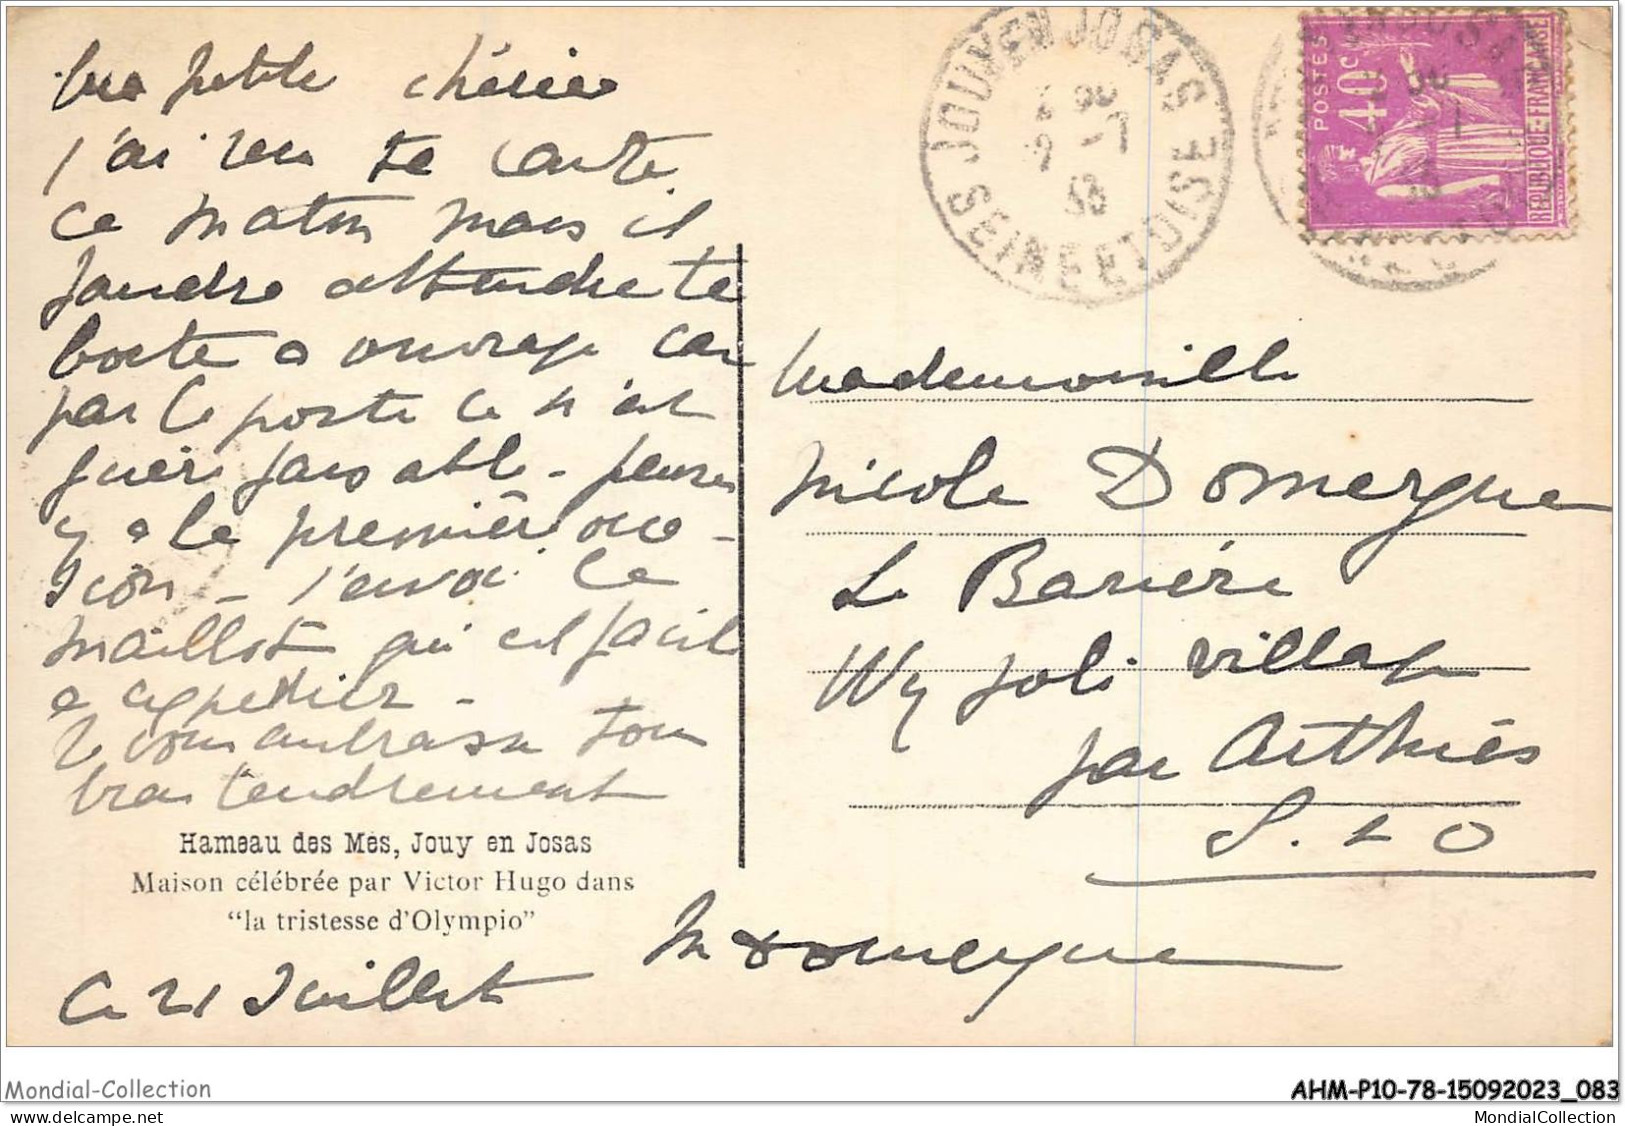 Ma petite chérie
j'ai reçu ta carte
ce matin mais il
faudra attendre ta
boite a ouvrage car
par la poste ce n'est
guère faisable - pensez
y a la première occa-
sion - j'envoi le
maillot qui est facile
a expedier -
Je vous embrasse tous
bien tendrement
Hameau des Mès, Jouy en Josas
Maison célébrée par Victor Hugo dans
"la tristesse d'Olympio"
Ce 21 Juillet
M Domergue
JOUY EN JOSAS
SEINE ET OISE
POSTES
40c
REPUBLIQUE-FRANÇAISE
Mademoiselle
Nicole Domergue
La Barrière
Wy joli village
par Arthies
S. & O
Mondial-Collection
AHM-P10-78-15092023_083
www.delcampe.net
MondialCollection